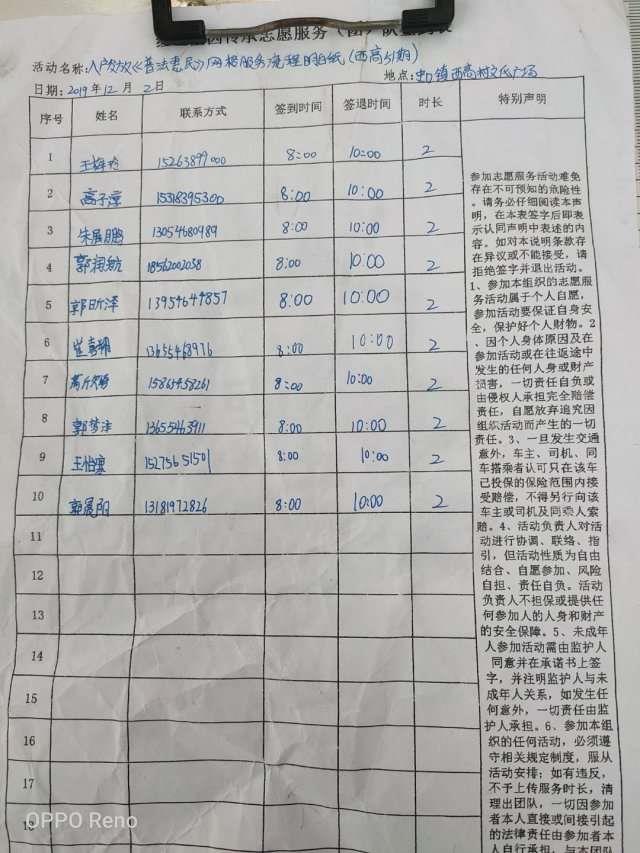 因传承志愿服务
活动名称:入户发放《普法惠民》网格服务流程明白纸(西高51期)
日期: 2019年12月2日 地点: 镇西高村文化广场
序号 姓名 联系方式 签到时间 签退时间 时长 特别声明
1 王梅玲 15263899000 8:00 10:00 2
2 高子淳 15318395300 8:00 10:00 2
3 朱展鹏 13054680989 8:00 10:00 2
4 郭润航 18562002058 8:00 10:00 2
5 郭昕泽 13954644857 8:00 10:00 2
6 崔喜翔 13655468976 8:00 10:00 2
7 15863458261 8:00 10:00 2
8 郭梦洋 13655463911 8:00 10:00 2
9 王怡霖 15275651501 8:00 10:00 2
10 郭晨阳 13181972826 8:00 10:00 2
11
12
13
14
15
16
17
18
参加志愿服务活动难免
存在不可预知的危险性
。请务必仔细阅读本声
明,在本表签字后即表
示认同声明中表述的内
容。如对本说明条款存
在异议或不能接受,请
拒绝签字并退出活动。
1、参加本组织的志愿服
务活动属于个人自愿,
参加活动要保证自身安
全,保护好个人财物。2
、因个人身体原因及在
参加活动或在往返途中
发生的任何人身或财产
损害,一切责任自负或
由侵权人承担完全赔偿
责任,自愿放弃追究因
组织活动而产生的一切
责任。3、一旦发生交通
意外,车主、司机、同
车搭乘者认可只在该车
已投保的保险范围内接
受赔偿,不得另行向该
车主或司机及同乘人索
赔。4、活动负责人对活
动进行协调、联络、指
引,但活动性质为自由
结合、自愿参加、风险
自担、责任自负。活动
负责人不担保或提供任
何参加人的人身和财产
的安全保障。5、未成年
人参加活动需由监护人
同意并在承诺书上签
字,并注明监护人与未
成年人关系,如发生任
何意外,一切责任由监
护人承担。6、参加本组
织的任何活动,必须遵
守相关规定制度,服从
活动安排;如有违反,
不予上传服务时长,清
理出团队,一切因参加
者本人直接或间接引起
的法律责任由参加者本
人自行承担,与本团队
OPPO Reno